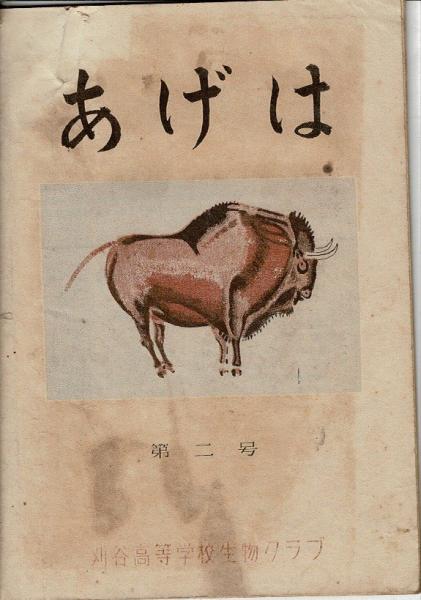 あげは
第二号
刈谷高等学校生物クラブ